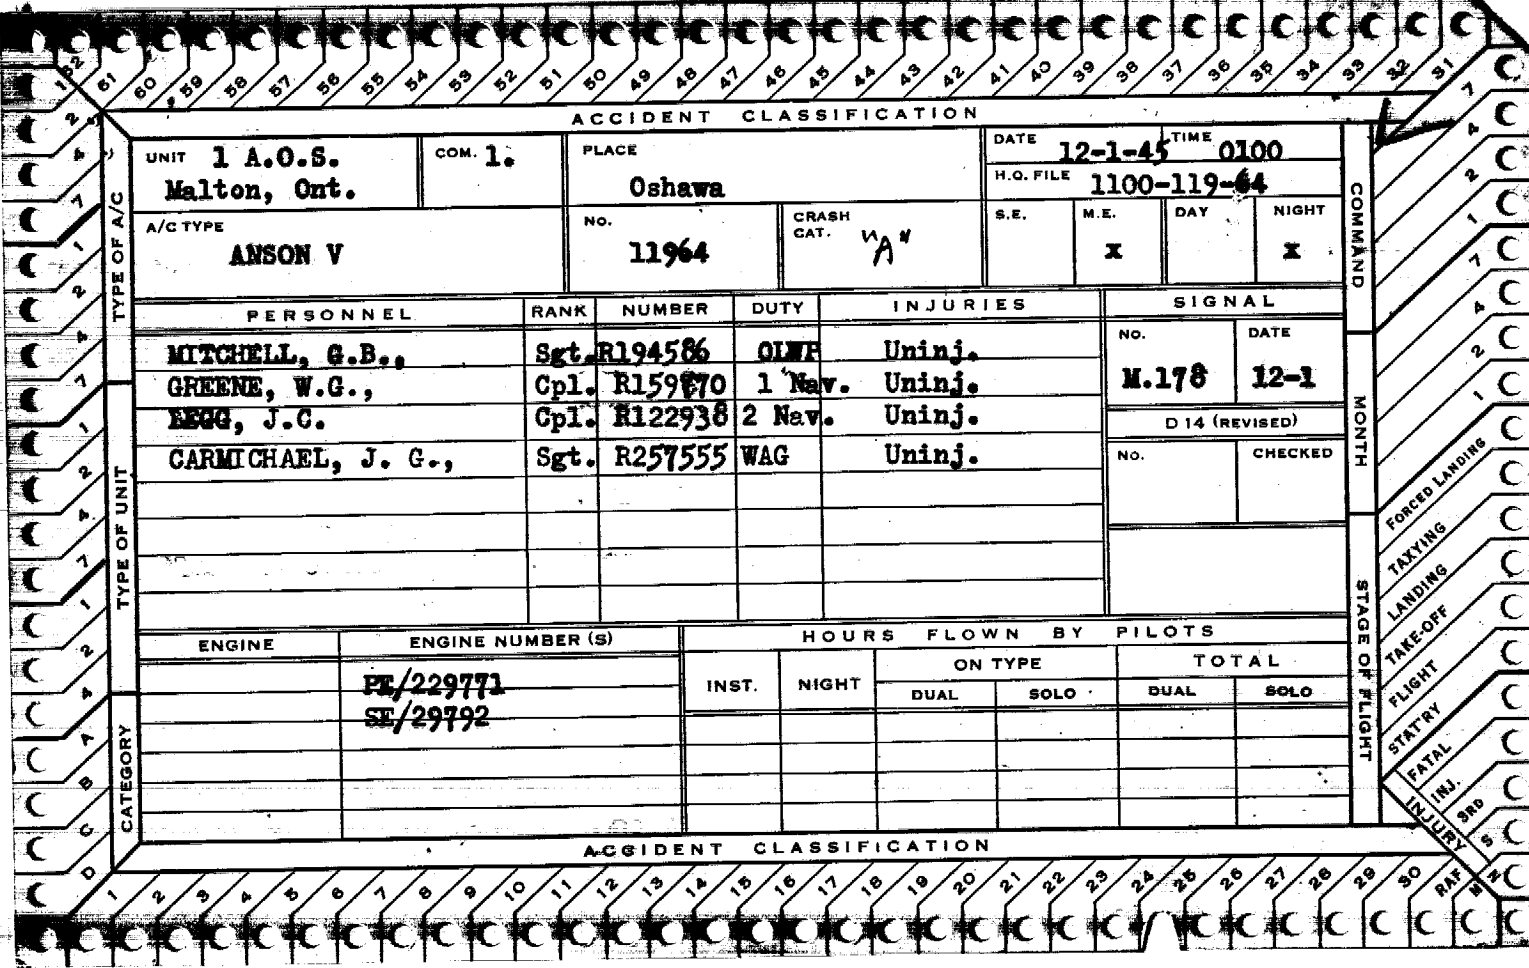 62 61 60 59 58 57 56 55 54 53 52 51 50 49 48 47 46 45 44 43 42 41 40 39 38 37 36 35 34 33 32 31
ACCIDENT CLASSIFICATION
UNIT 1 A.O.S.
Malton, Ont.
COM. 1.
PLACE
Oshawa
DATE 12-1-45 TIME 0100
H.Q. FILE 1100-119-64
A/C TYPE
ANSON V
NO.
11964
CRASH
CAT. "A"
S.E. M.E. DAY NIGHT
x x
PERSONNEL RANK NUMBER DUTY INJURIES SIGNAL
MITCHELL, G.B., Sgt. R194586 Uninj.
GREENE, W.G., Cpl. 1 Nav. Uninj.
BEGG, J.C. Cpl. R122938 2 Nav. Uninj.
CARMICHAEL, J. G., Sgt. R257555 WAG Uninj.
NO. DATE
M.178 12-1
D 14 (REVISED)
NO. CHECKED
ENGINE ENGINE NUMBER (S)
PE/229771
SE/29792
HOURS FLOWN BY PILOTS
INST. NIGHT ON TYPE TOTAL
DUAL SOLO DUAL SOLO
ACCIDENT CLASSIFICATION
1 2 3 4 5 6 7 8 9 10 11 12 13 14 15 16 17 18 19 20 21 22 23 24 25 26 27 28 29 30 RAF M N
TYPE OF A/C
TYPE OF UNIT
CATEGORY
1 2 4 7 1 2 4 7 1 2 4 7 1 2 4 A B C D
COMMAND
MONTH
STAGE OF FLIGHT
7 4 2 1 7 4 2 1
FORCED LANDING
TAXYING
LANDING
TAKE-OFF
FLIGHT
STAT'RY
FATAL
INJ.
3RD
S
INJURY